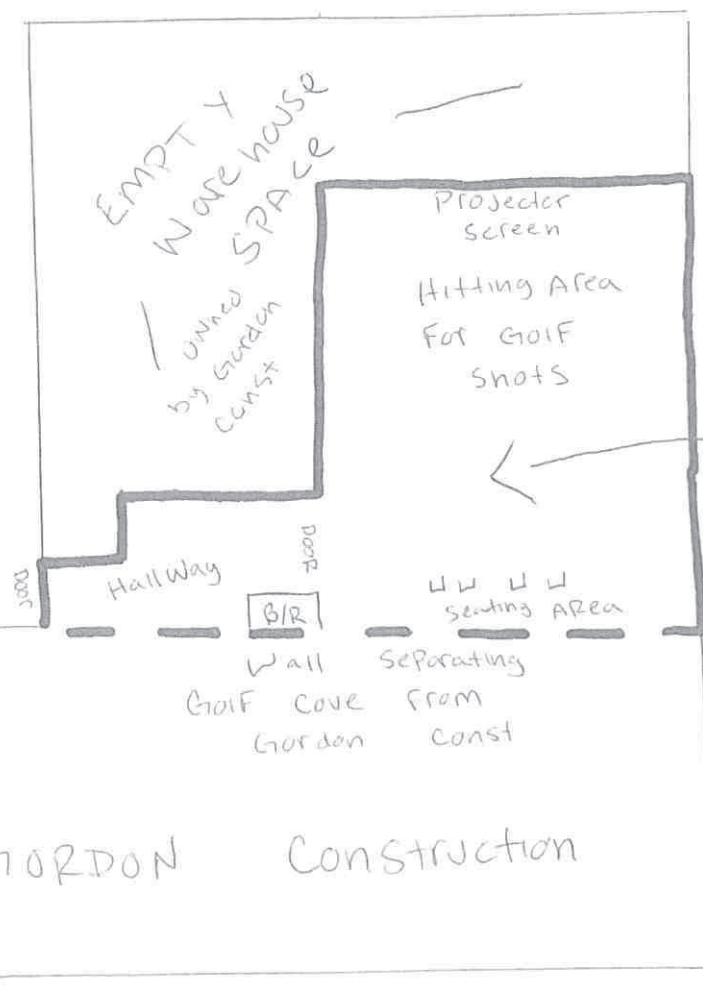 EMPTY
Warehouse
SPACE
owned
by Gordon
Const
Projector
Screen
Hitting Area
For Golf
Shots
Door
Door
Hallway
B/R
Seating Area
Wall Separating
Golf Cove From
Gordon Const
GORDON Construction